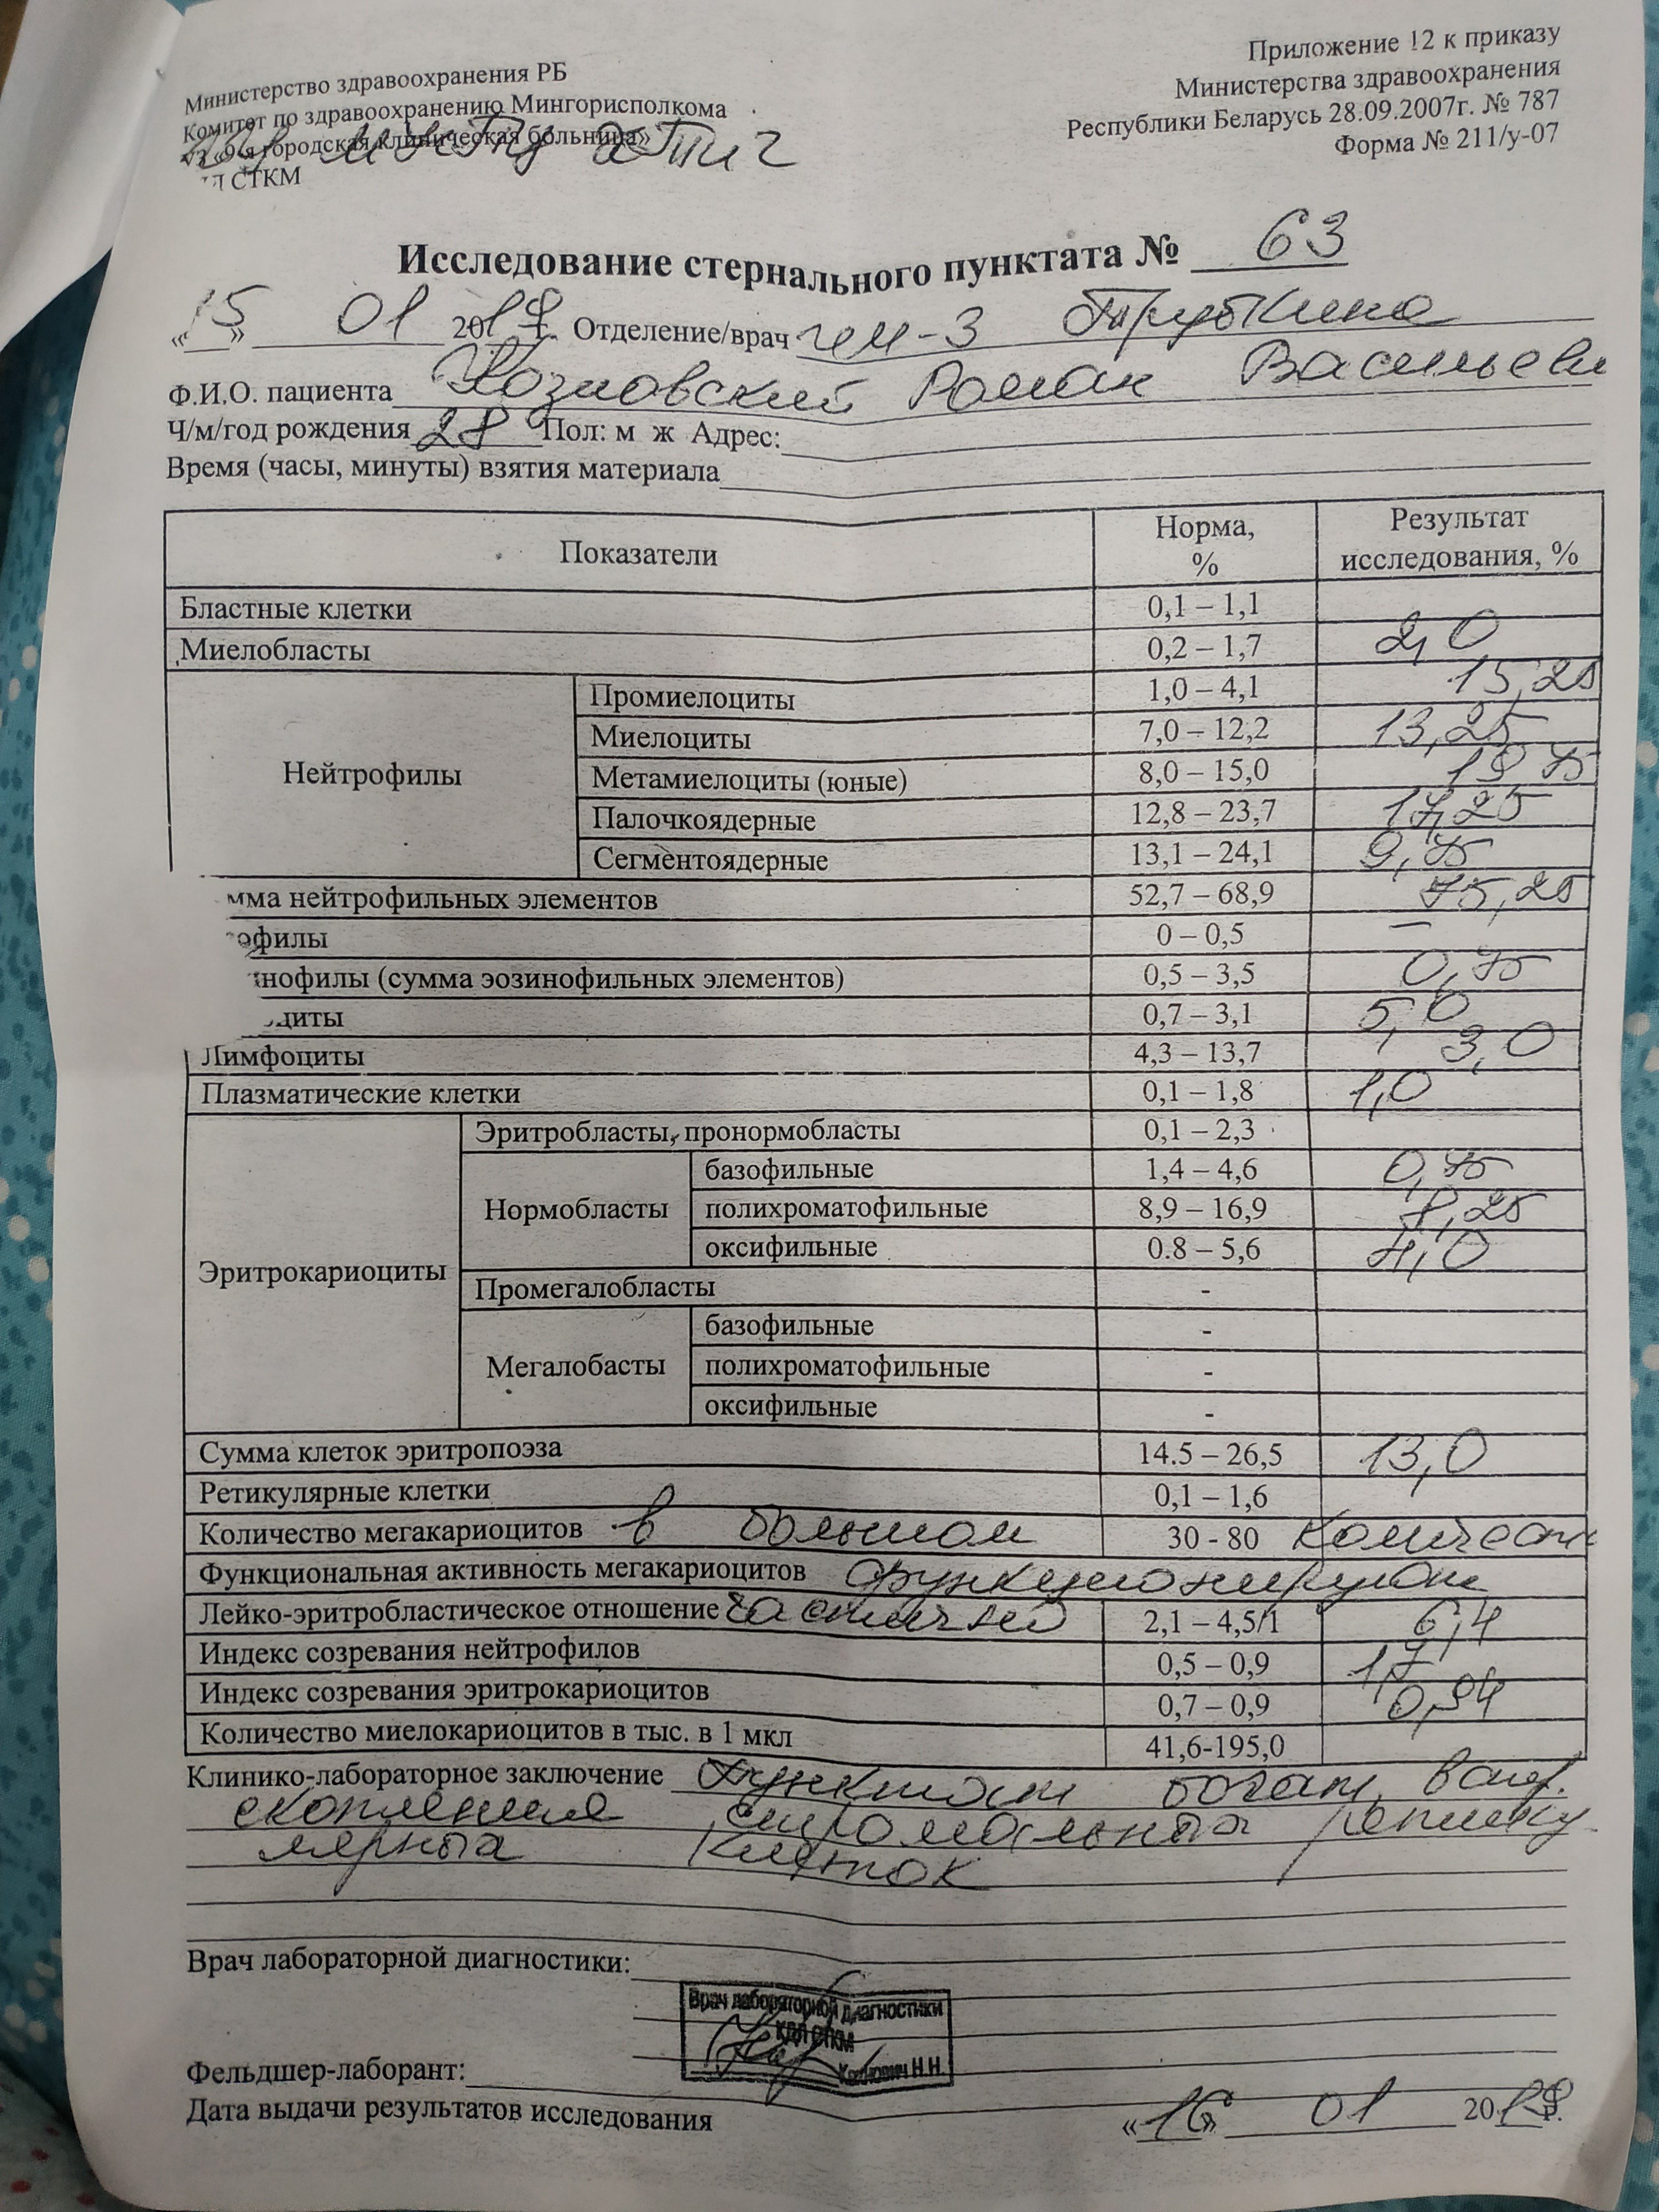 Приложение 12 к приказу
Министерства здравоохранения
Республики Беларусь 28.09.2007г. № 787
Форма № 211/у-07
Министерство здравоохранения РБ
Комитет по здравоохранению Мингорисполкома
уз «9-я городская клиническая больница»
СТКМ
Исследование стернального пунктата № 63
«15» 01 2019 г. Отделение/врач гем-3 Трубкина
Ф.И.О. пациента Козловский Роман Васильеви
Ч/м/год рождения 28 Пол: м ж Адрес:
Время (часы, минуты) взятия материала
Показатели Норма, % Результат исследования, %
Бластные клетки 0,1 – 1,1
Миелобласты 0,2 – 1,7 2,0
Нейтрофилы
Промиелоциты 1,0 – 4,1 15,25
Миелоциты 7,0 – 12,2 13,25
Метамиелоциты (юные) 8,0 – 15,0 19,75
Палочкоядерные 12,8 – 23,7 17,25
Сегментоядерные 13,1 – 24,1 9,75
мма нейтрофильных элементов 52,7 – 68,9 75,25
офилы 0 – 0,5 –
инофилы (сумма эозинофильных элементов) 0,5 – 3,5 0,75
циты 0,7 – 3,1 5,0
Лимфоциты 4,3 – 13,7 3,0
Плазматические клетки 0,1 – 1,8 1,0
Эритрокариоциты
Эритробласты, пронормобласты 0,1 – 2,3
Нормобласты
базофильные 1,4 – 4,6 0,75
полихроматофильные 8,9 – 16,9 8,25
оксифильные 0.8 – 5,6 4,0
Промегалобласты -
Мегалобасты
базофильные -
полихроматофильные -
оксифильные -
Сумма клеток эритропоэза 14.5 – 26,5 13,0
Ретикулярные клетки 0,1 – 1,6
Количество мегакариоцитов в большом 30 - 80 количеств
Функциональная активность мегакариоцитов функционируют
Лейко-эритробластическое отношение частично 2,1 – 4,5/1 6,4
Индекс созревания нейтрофилов 0,5 – 0,9 1,7
Индекс созревания эритрокариоцитов 0,7 – 0,9 0,94
Количество миелокариоцитов в тыс. в 1 мкл 41,6-195,0
Клинико-лабораторное заключение Пунктат богат,
скопления стромальных ретику-
лярных клеток
Врач лабораторной диагностики:
Врач лабораторной диагностики
Н.Н.
Фельдшер-лаборант:
Дата выдачи результатов исследования «16» 01 2019 г.